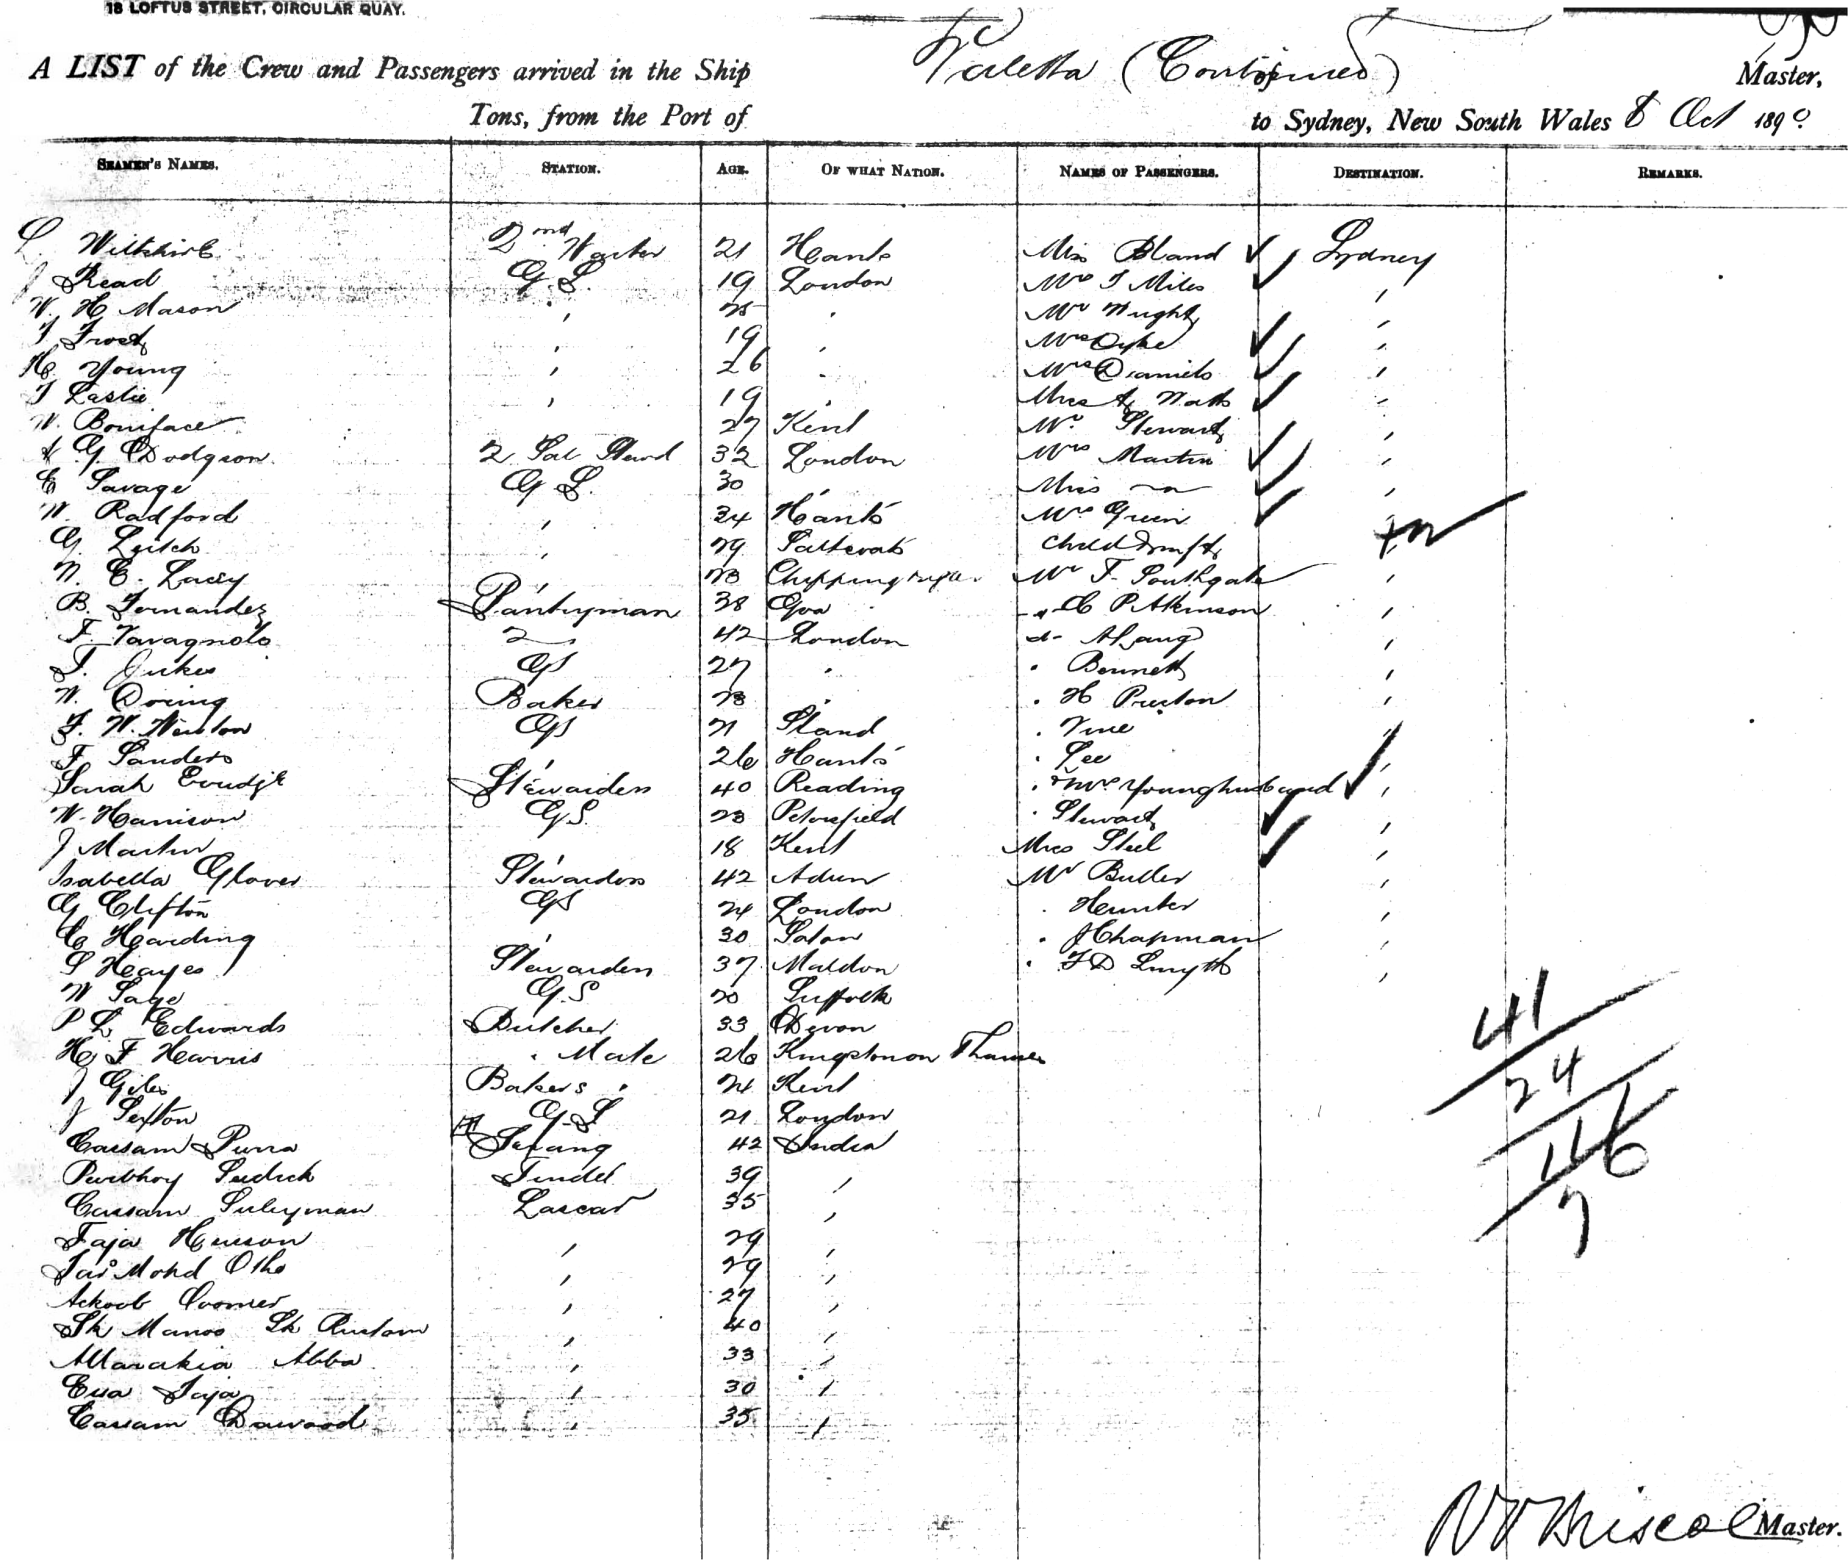 18 LOFTUS STREET, CIRCULAR QUAY.
A LIST of the Crew and Passengers arrived in the Ship Valetta (Continued) Master,
Tons, from the Port of to Sydney, New South Wales 8 Oct 1890
SEAMEN'S NAMES. STATION. AGE. OF WHAT NATION. NAMES OF PASSENGERS. DESTINATION. REMARKS.
L. Wiltshire 2nd Waiter 21 Hants Miss Bland Sydney
J Read G.S. 19 London Mr T Miles "
W. H Mason " 25 " Mr Wright "
T Frost " 19 " Mrs Dyke "
H. Young " 26 " Mrs Daniels "
T Leslie " 19 " Miss A Watts "
W. Boniface 27 Kent Mr Stewart "
A G Dodgson 2 Sal Steward 32 London Mrs Martin "
E Savage G S. 30 " Miss "
W. Radford " 34 Hants Mrs Green
G. Leitch " 29 child & inft
W. E. Lacey " 23 Chipping Mr F. Southgate "
B. Fernandez Pantryman 38 Goa C P Atkinson "
F. 2 42 London "
T. Jukes GS 27 " " Bennett "
W. Doring Baker 23 " " H Preston "
F. W. GS 21 " Vine "
F Sanders " 26 Hants " Lee "
Sarah Stewardess 40 Reading " & Mrs Younghusband "
W. Harrison G.S. 23 Petersfield " Stewart "
J Martin " 18 Kent Miss Steel "
Isabella Glover Stewardess 42 Mr Butler "
G Clifton GS 24 London " Hunter "
C Harding " 30 " J Chapman "
S Heayes Stewardess 37 Maldon " F D Smyth "
W Sage G.S 20 Suffolk
P L Edwards Butcher 33 Devon 41
H. F Harris " Mate 26 Kingston on Thames
J Giles Bakers " 24 Kent 24
J Sexton G.S 21 London
Cassam Purra Serang 42 India 116
Purbhoy Sudick Tindel 39 "
Cassam Suleyman Lascar 35 " 7
Jaja Husson " 29 "
Mohd " 29 "
Ackoob Oosman " 27 "
Sk Manoo Sk Rustom " 40 "
Allarakia Abba " 33 "
Esa Jaja " 30 "
Cassam Dawood " 35 "
Briscoe Master.